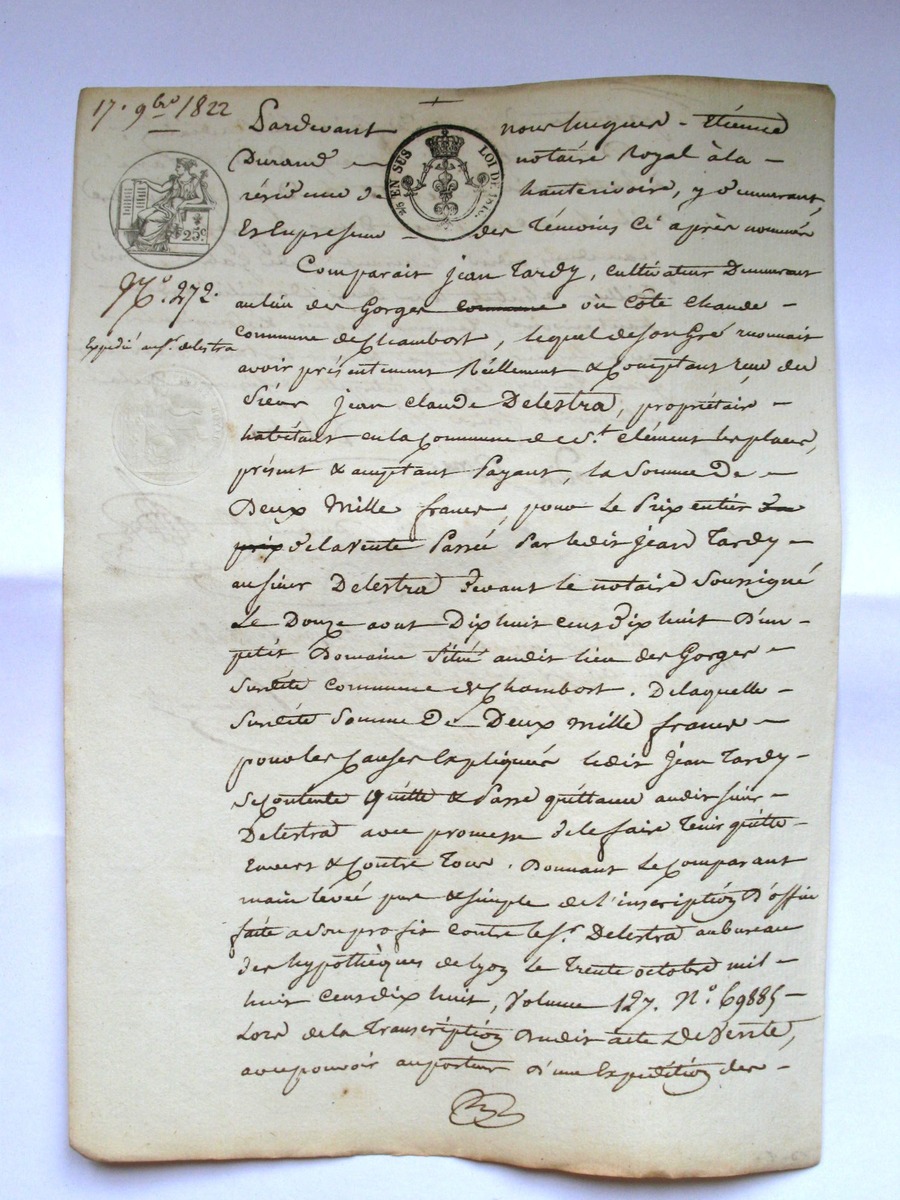 17. 9bre 1822
Pardevant nous hugues - Etienne
Durand - notaire Royal à la -
résidence de hauterivoire, y demeurant,
Et En presence - des Témoins Ci après nommés
EN SUS LOI DE
25c
No. 272.
Expedié au sr. delestra
Comparait jean Tardy, cultivateur Demeurant
au lieu des Gorges commune ou Côte Chaude -
commune de Chambost, lequel de son Gré reconnait
avoir présentement Réellement & Comptant reçu du
Siéur jean claude Delestra, propriétaire -
habitant en la Commune de St. clément les places,
présent & acceptant Payant, la Somme De -
Deux Mille francs, pour Le Prix entier De
prix de la vente Passée Par ledit jean Tardy -
au sieur Delestra devant le notaire Soussigné
Le Douze aout Dix huit cent Dix huit D'un -
petit Domaine Situé audit lieu des Gorges -
Susdite commune de Chambost. De laquelle -
Susdite Somme De - Deux mille francs -
pour les Causes Expliquées ledit jean Tardy -
Se Contente Quitte & Passe quittance audit sieur -
Delestra avec promesse de le faire Tenir quitte
Envers & Contre Tous. Donnant Le Comparant
main levée pure & simple de l'inscription D'office
faite a son profit contre le Sr. Delestra au bureau
des hypothèques de Lyon le Trente octobre mil -
huit Cent dix huit, Volume 127. No. 69885 -
Lors de la Transcription Dudit acte De Vente,
avec pouvoir au porteur d'une Expédition des -